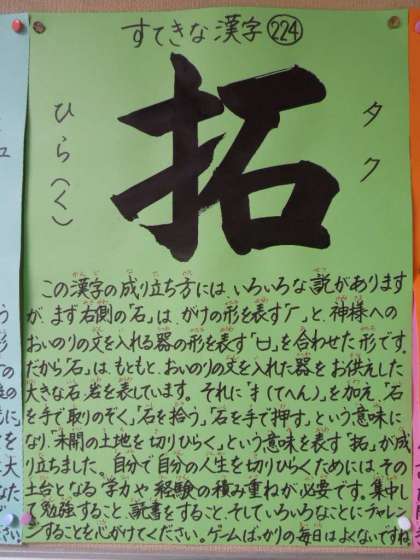 すてきな漢字 224
拓
タク
ひら(く)
この漢字の成り立ち方には、いろいろな説があります
が、まず右側の「石」は、がけの形を表す「厂」と、神様への
おいのりの文を入れる器の形を表す「口」を合わせた形です。
だから「石」は、もともと、おいのりの文を入れた器をお供えした
大きな石、岩を表しています。それに「扌(てへん)」を加え、「石
を手で取りのぞく」「石を拾う」「石を手で押す」という意味に
なり、「未開の土地を切りひらく」という意味を表す「拓」が成
り立ちました。自分で自分の人生を切りひらくためには、その
土台となる学力や経験の積み重ねが必要です。集中し
て勉強すること、読書をすること、そしていろいろなことにチャレン
ジすることを心がけてください。ゲームばっかりの毎日はよくないですね